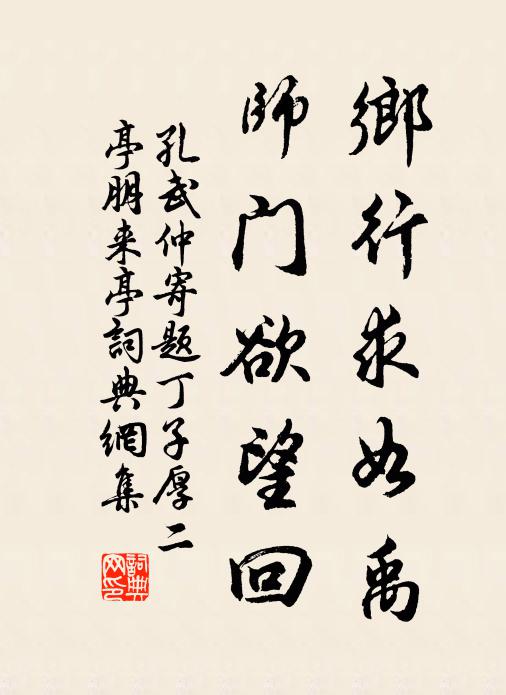 鄉行求如禹
師门欲望回
孔武仲寄题丁子厚二
亭朋来亭詞典網集
詞典
网印